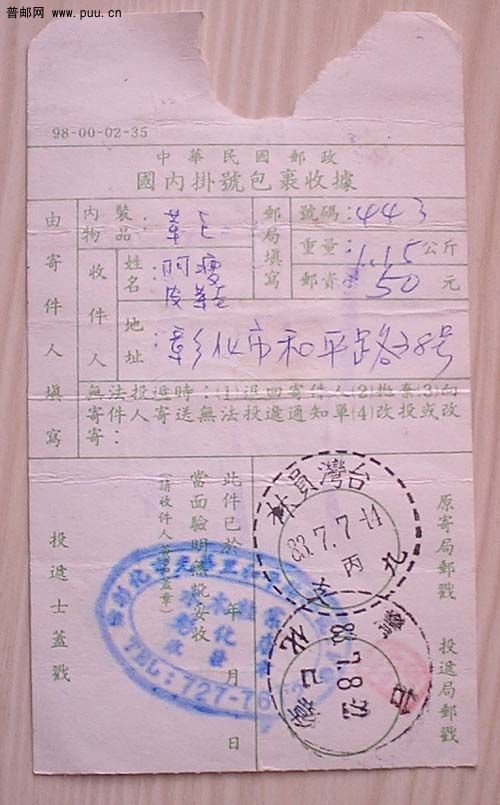 普邮网 www.puu.cn
98-00-02-35
中華民國郵政
國內掛號包裹收據
由寄件人填寫
內裝物品：
收件人
姓名：阿瘦皮鞋
地址：彰化市和平路38号
郵局填寫
號碼：443
重量：1.15公斤
郵資：50元
無法投遞時：(1)退回寄件人(2)拋棄(3)向
寄件人寄送無法投遞通知單(4)改投或改
寄：
投遞士蓋戳
此件已於 年 月 日
當面驗明無訛妥收
原寄局郵戳
投遞局郵戳
台灣員林
83.7.7-11
丙
台灣
83.7.8
彰化
TEL:727-76